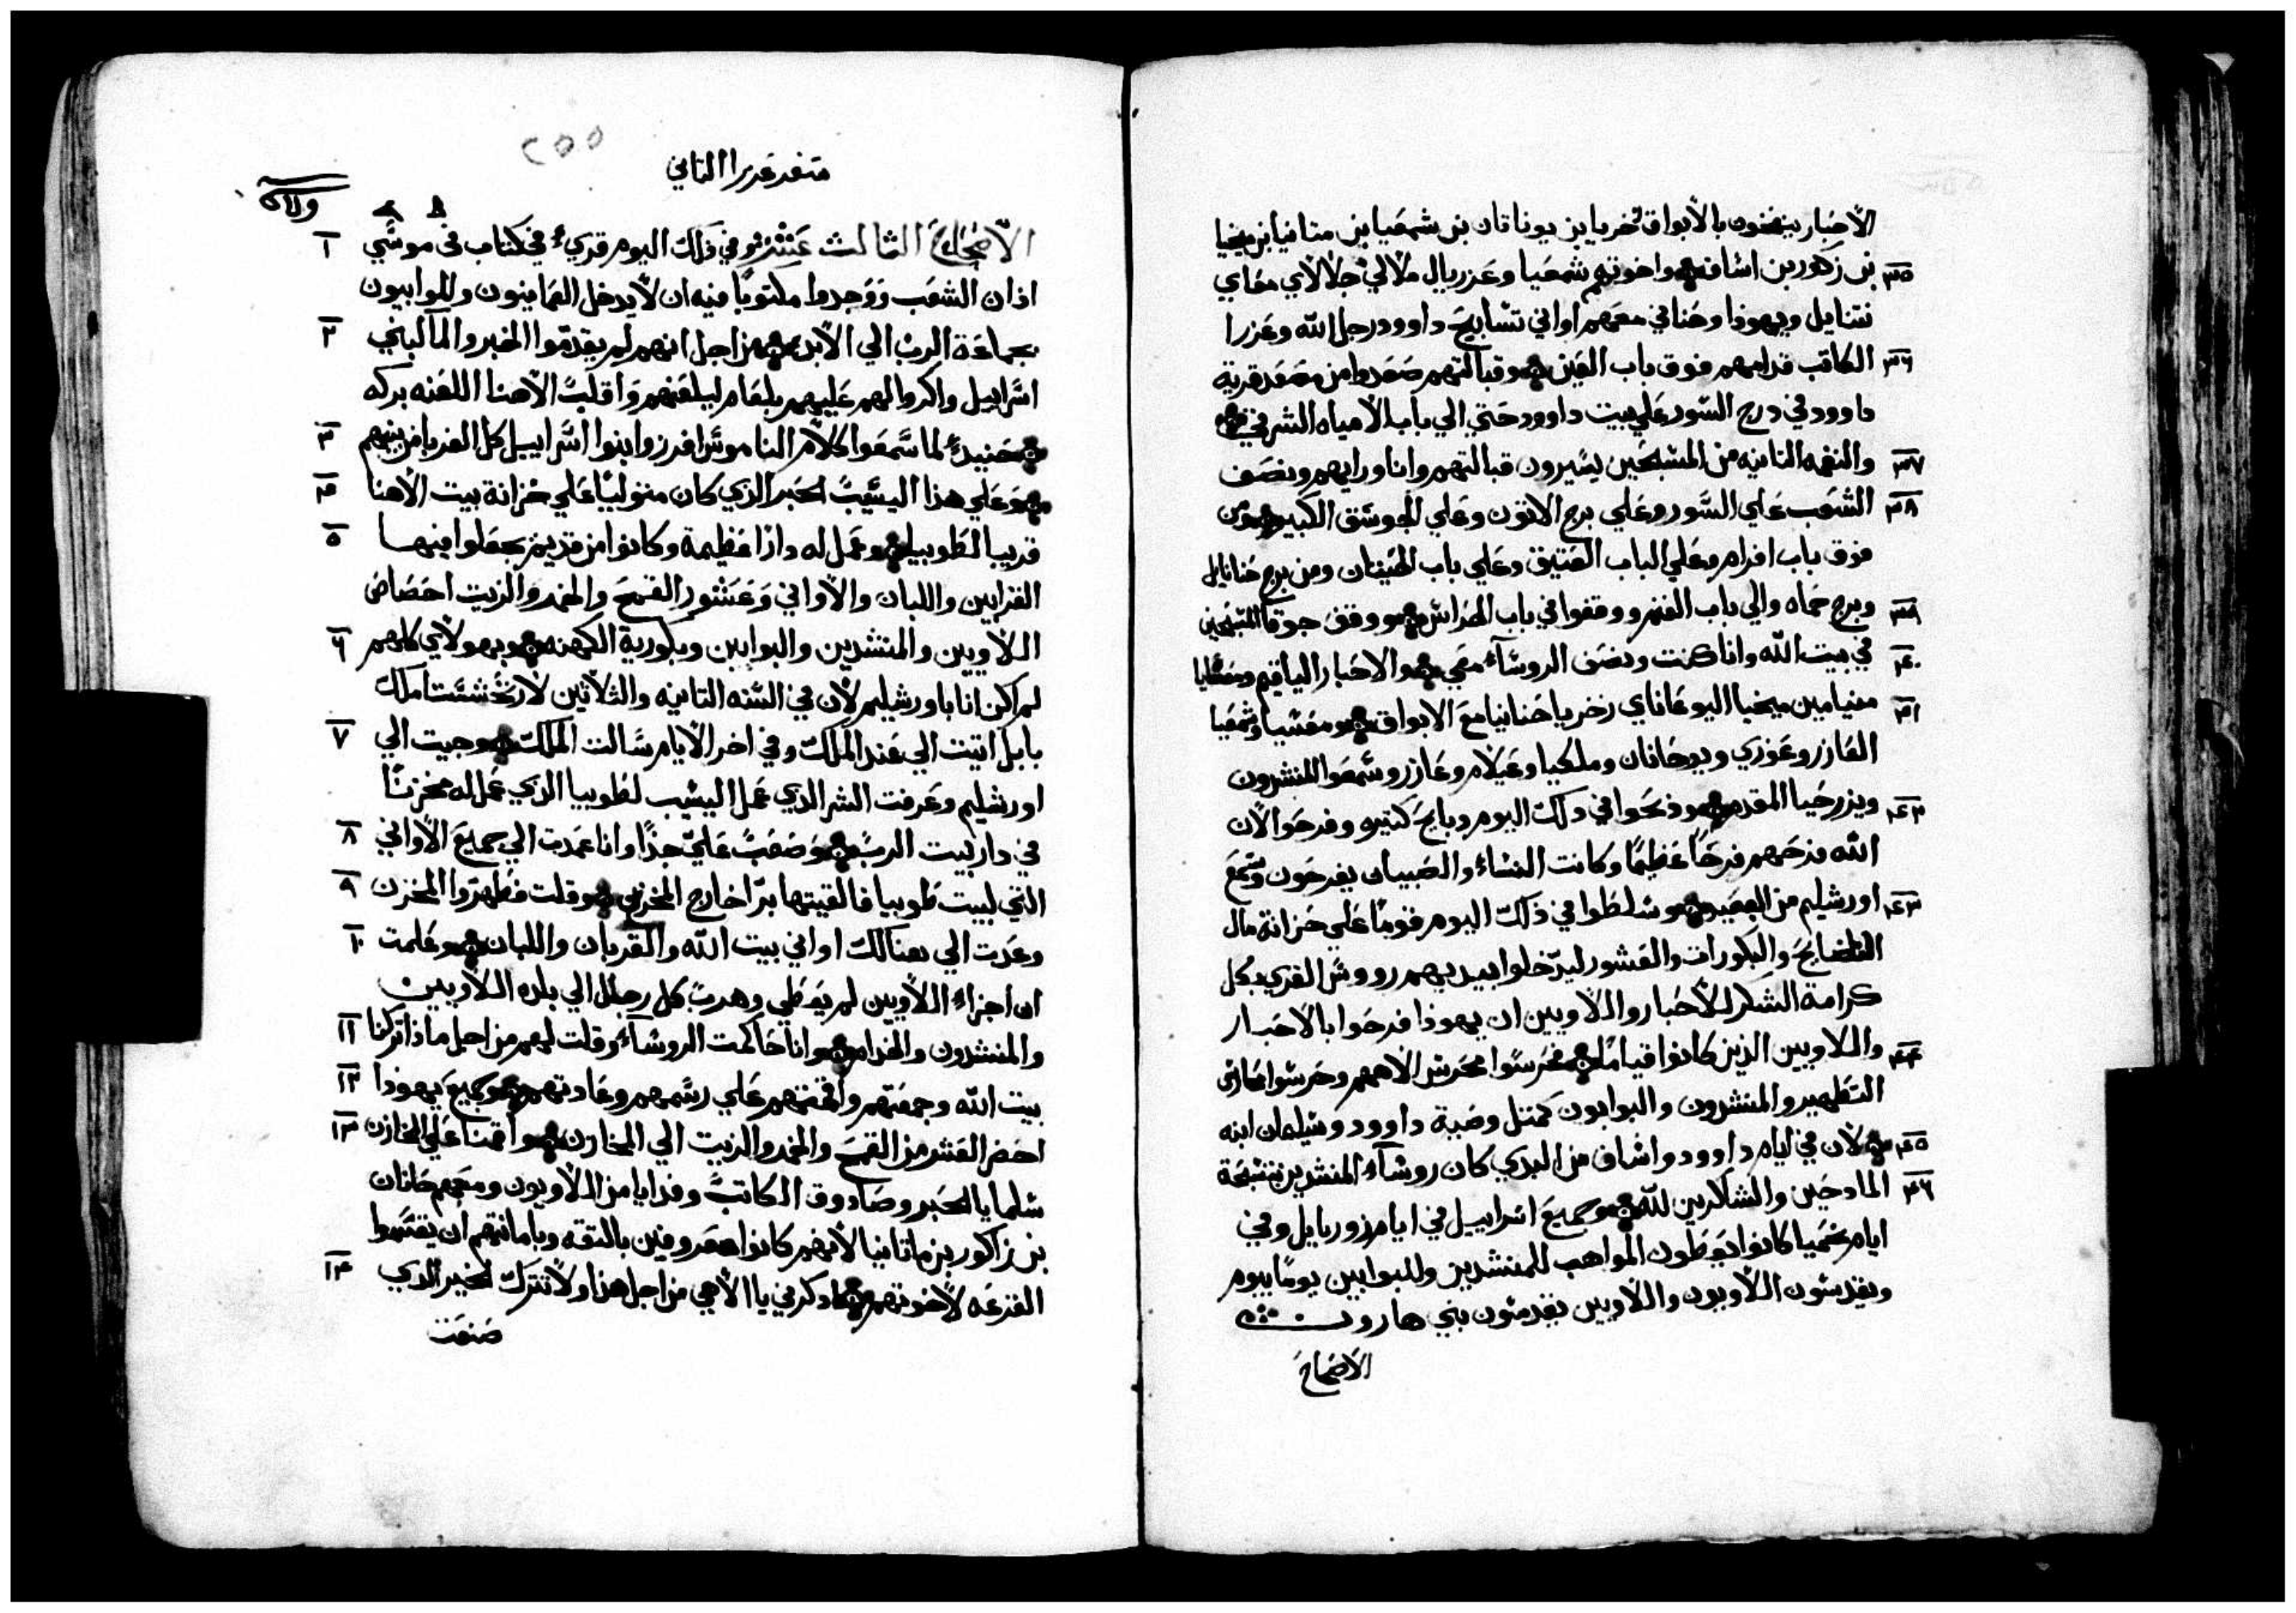 الأحبار ينفخون بالأبواق زخريا بن يوناثان بن شمعيا بن متانيا بن ميخيا
٣٥ بن زكور بن اساف واخوتهم شمعيا وعزريال ملالي جلالاي معاي
نتنايل ويهوذا وحناني معهم اواني تسابيح داوود رجل الله وعزرا
٣٦ الكاتب قدامهم فوق باب العين وقبالتهم صعدوا من مصعد قرية
داوود في درج السور علي بيت داوود حتي الي باب الامياه الشرقي
٣٧ والنغمه الثانيه من المسبحين يسيرون قبالتهم وانا ورايهم ونصف
٣٨ الشعب علي السور وعلي برج الاتون وعلي الجوسق الكبير ومن
فوق باب افرام وعلي الباب العتيق وعلي باب الحيتان ومن برج حنانايل
٣٩ وبرج حماه والي باب الغنم ووقفوا في باب الحراس ووقف جوقا المسبحين
٤٠ في بيت الله وانا كنت ونصف الروساء معي والاحبار الياقيم ومعشايا
٤١ منيامين ميخيا اليوعاناي زخريا حنانيا مع الابواق ومعشيا وشمعيا
العازر وعوزي ويوحانان وملكيا وعيلام وعازر وسمعوا المنشدون
٤٢ ويزرحيا المقدم وذبحوا في ذلك اليوم دبايح كتيره وفرحوا لأن
الله فرحهم فرحًا عظيمًا وكانت النساء والصبيان يفرحون وسمع
٤٣ اورشليم من البعيد وسلطوا في ذلك اليوم قومًا علي خزانة مال
النضايح والبكورات والعشور ليدخلوا بيديهم رووس القري بكل
كرامة الشكر للأحبار واللاويين ان يهوذا فرحوا بالاحبار
٤٤ واللاويين الذين كانوا قيامًا فحرسوا محرس الاههم وحرسوا محارس
التطهير والمنشدون والبوابون كمتل وصية داوود وسليمان ابنه
٤٥ لان في ايام داوود واساف من البدي كان روساء المنشدين بتسبحة
٤٦ المادحين والشاكرين لله وجميع اسراييل في ايام زوربابل وفي
ايام نحميا كانوا يعطون المواهب للمنشدين وللبوابين يومًا بيوم
ويقدسون اللاويون واللاويين يقدسون بني هارون
الاصحاح
٢٥٥
سفر عزرا الثاني
الاصحاح الثالث عشر وفي ذلك اليوم قريء في كتاب في موسي ١
اذان الشعب ووجدوا مكتوبًا فيه ان لا يدخل العمانيون والموابيون
بجماعة الرب الي الأبد من اجل انهم لم يقدموا الخبز والما لبني ٢
اسراييل واكروا لهم عليهم بلعام ليلعنهم واقلب الاهنا اللعنه بركه
حنيدٍ لما سمعوا كلام الناموس افرزوا بنوا اسراييل كل الغربا من بينهم ٣
وعلي هذا اليشيب الحبر الذي كان متوليًا علي خزانة بيت الاهنا ٤
قريبا لطوبيا وعمل له دارًا عظيمة وكانوا من قديم يجعلوا فيها ٥
القرابين واللبان والأواني وعشور القمح والخمر والزيت احصاص
اللاويين والمنشدين والبوابين وبكورية الكهنه وبهولاي كلهم ٦
لم اكن انا باورشليم لأن في السنه التانيه والثلاثين لارتخششتا ملك
بابل اتيت الي عند الملك وفي اخر الأيام سالت الملك وجيت الي ٧
اورشليم وعرفت الشر الدي عمل اليشيب لطوبيا الدي عمل له مخزنًا
في دار بيت الرب وصعب علي جدًا وانا عمدت الي جميع الأواني ٨
التي لبيت طوبيا فالقيتها برًا خارج المخزن وقلت فطهروا المخزن ٩
وعدت الي هنالك اواني بيت الله والقربان واللبان وعلمت ١٠
ان اجزاء اللاويين لم يعطي وهرب كل رجل الي بلده اللاويين
والمنشدون والخدام وانا حاكمت الروساء وقلت لهم من اجل ماذا تركنا ١١
بيت الله وجمعتهم واقمتهم علي رسمهم وعادتهم وجميع يهوذا ١٢
احضر العشر من القمح والخمر والزيت الي المخازن واقمنا علي المخازن ١٣
شلمايا الحبر وصادوق الكاتب وفدايا من اللاويون ومعهم حانان
بن زاكور بن ماتانيا لأنهم كانوا معروفين بالتقه وبامانتهم ان يقتسموا
القرعه لأخوتهم ادكرني يا الأهي من اجل هذا ولا تترك الخير الدي ١٤
صنعت